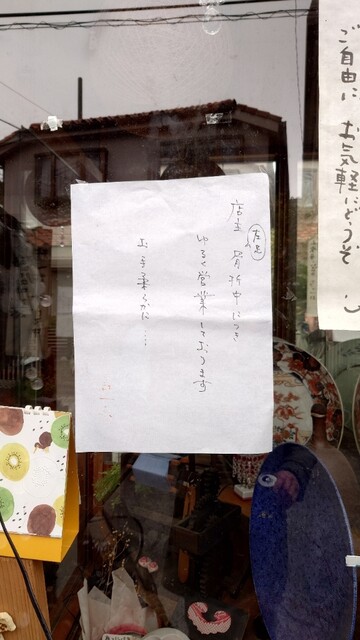 ご自由に お気軽にどうぞ
店主 左足 骨折中につき
ゆるく営業しております
お手柔らかに…